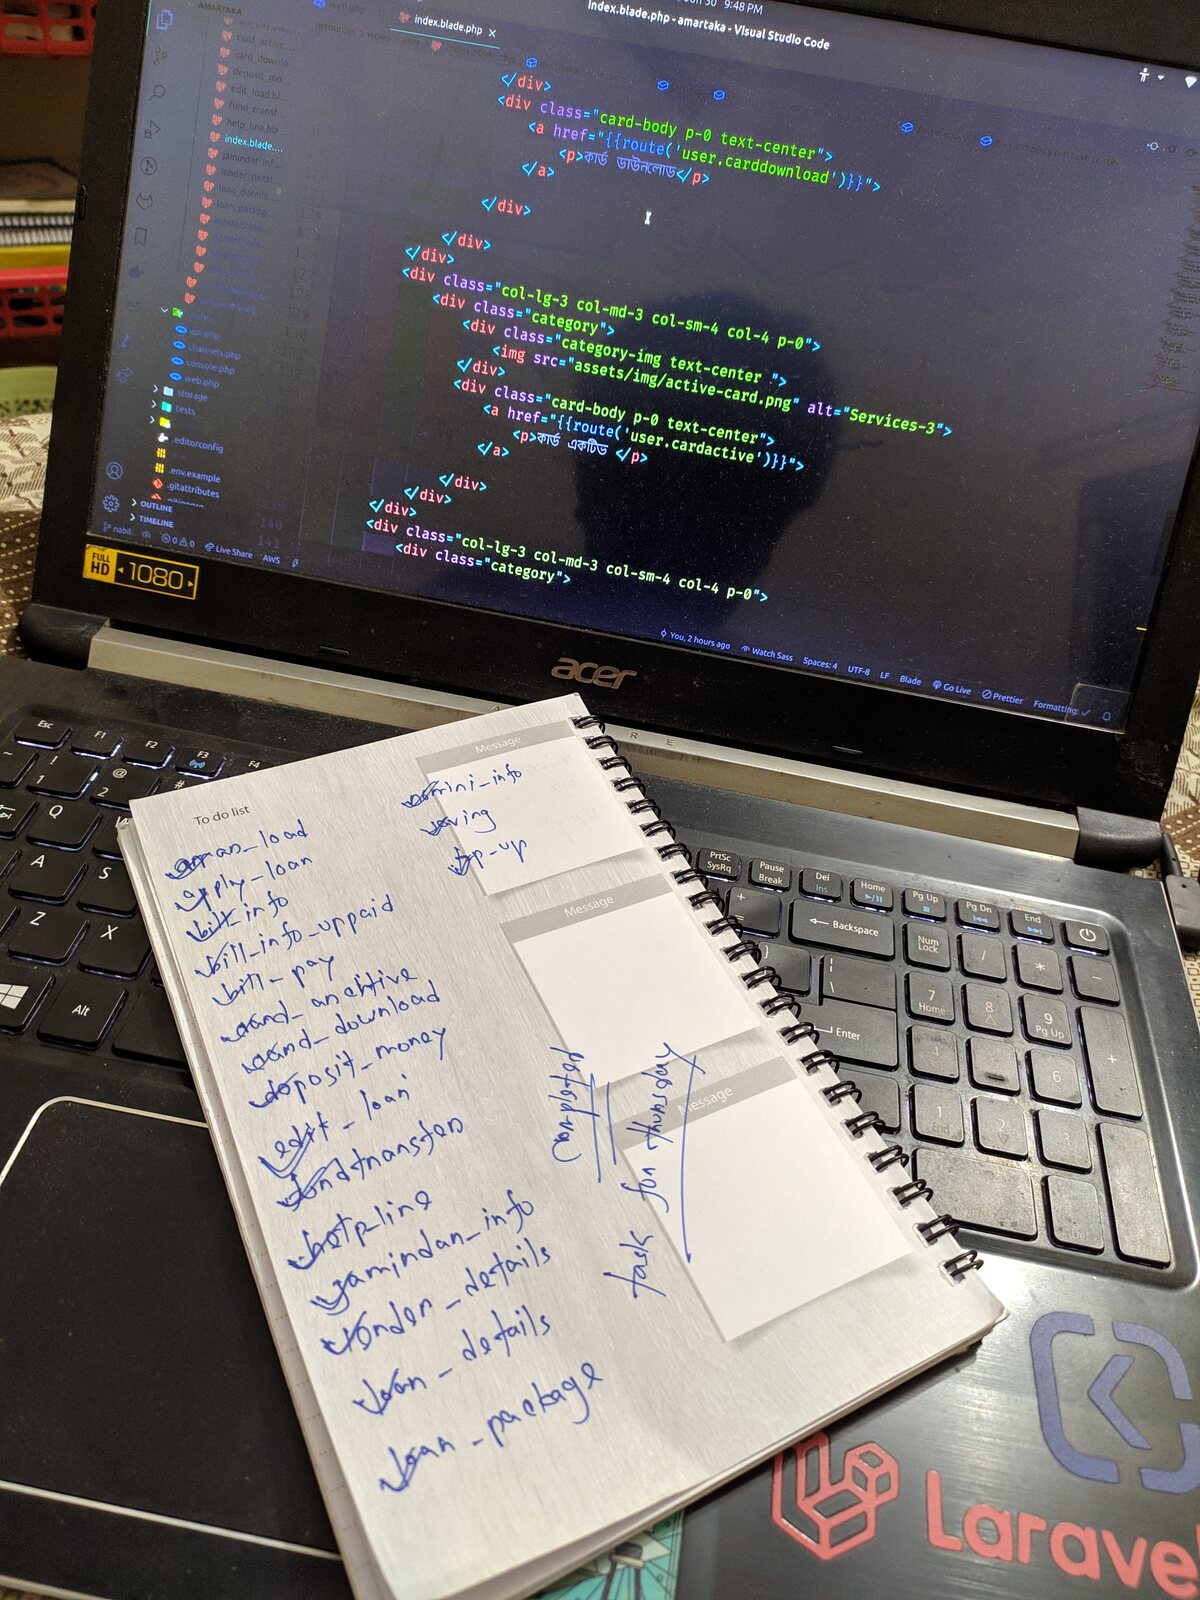 AMARTAKA
9:48 PM
index.blade.php - amartaka - Visual Studio Code
web.php
index.blade.php ×
card_active...
card_downlo...
deposit_mo...
edit_load.bl...
fund_transf...
help_line.ble...
index.blade....
jamindar_inf...
lender_detai...
loan_details...
loan_packag...
channels.php
console.php
web.php
storage
tests
.editorconfig
.env.example
.gitattributes
OUTLINE
TIMELINE
</div>
<div class="card-body p-0 text-center">
<a href="{{route('user.carddownload')}}">
<p>কার্ড ডাউনলোড</p>
</a>
</div>
</div>
</div>
<div class="col-lg-3 col-md-3 col-sm-4 col-4 p-0">
<div class="category">
<div class="category-img text-center ">
<img src="assets/img/active-card.png" alt="Services-3">
</div>
<div class="card-body p-0 text-center">
<a href="{{route('user.cardactive')}}">
<p>কার্ড একটিভ </p>
</a>
</div>
</div>
</div>
<div class="col-lg-3 col-md-3 col-sm-4 col-4 p-0">
<div class="category">
140
141
0 0 Live Share AWS
You, 2 hours ago Watch Sass Spaces: 4 UTF-8 LF Blade Go Live Prettier Formatting: ✓
FULL HD 1080
acer
Esc F1 F2 F3 F4
! 1 @ 2 #
Q
A S
Z X
Alt
PrtSc SysRq Pause Break Del Ins Home Pg Up Pg Dn End
+ = ← Backspace Num Lock / * -
7 Home 8 9 Pg Up +
Enter 4 6
1 End 2
To do list
apply_loan
bill_info
bill_info_uppaid
bill_pay
card_download
deposit_money
edit_loan
help_line
jamindar_info
lender_details
loan_details
loan_package
Message
mini_info
saving
top-up
Message
Message
completed
task for thursday
Laravel